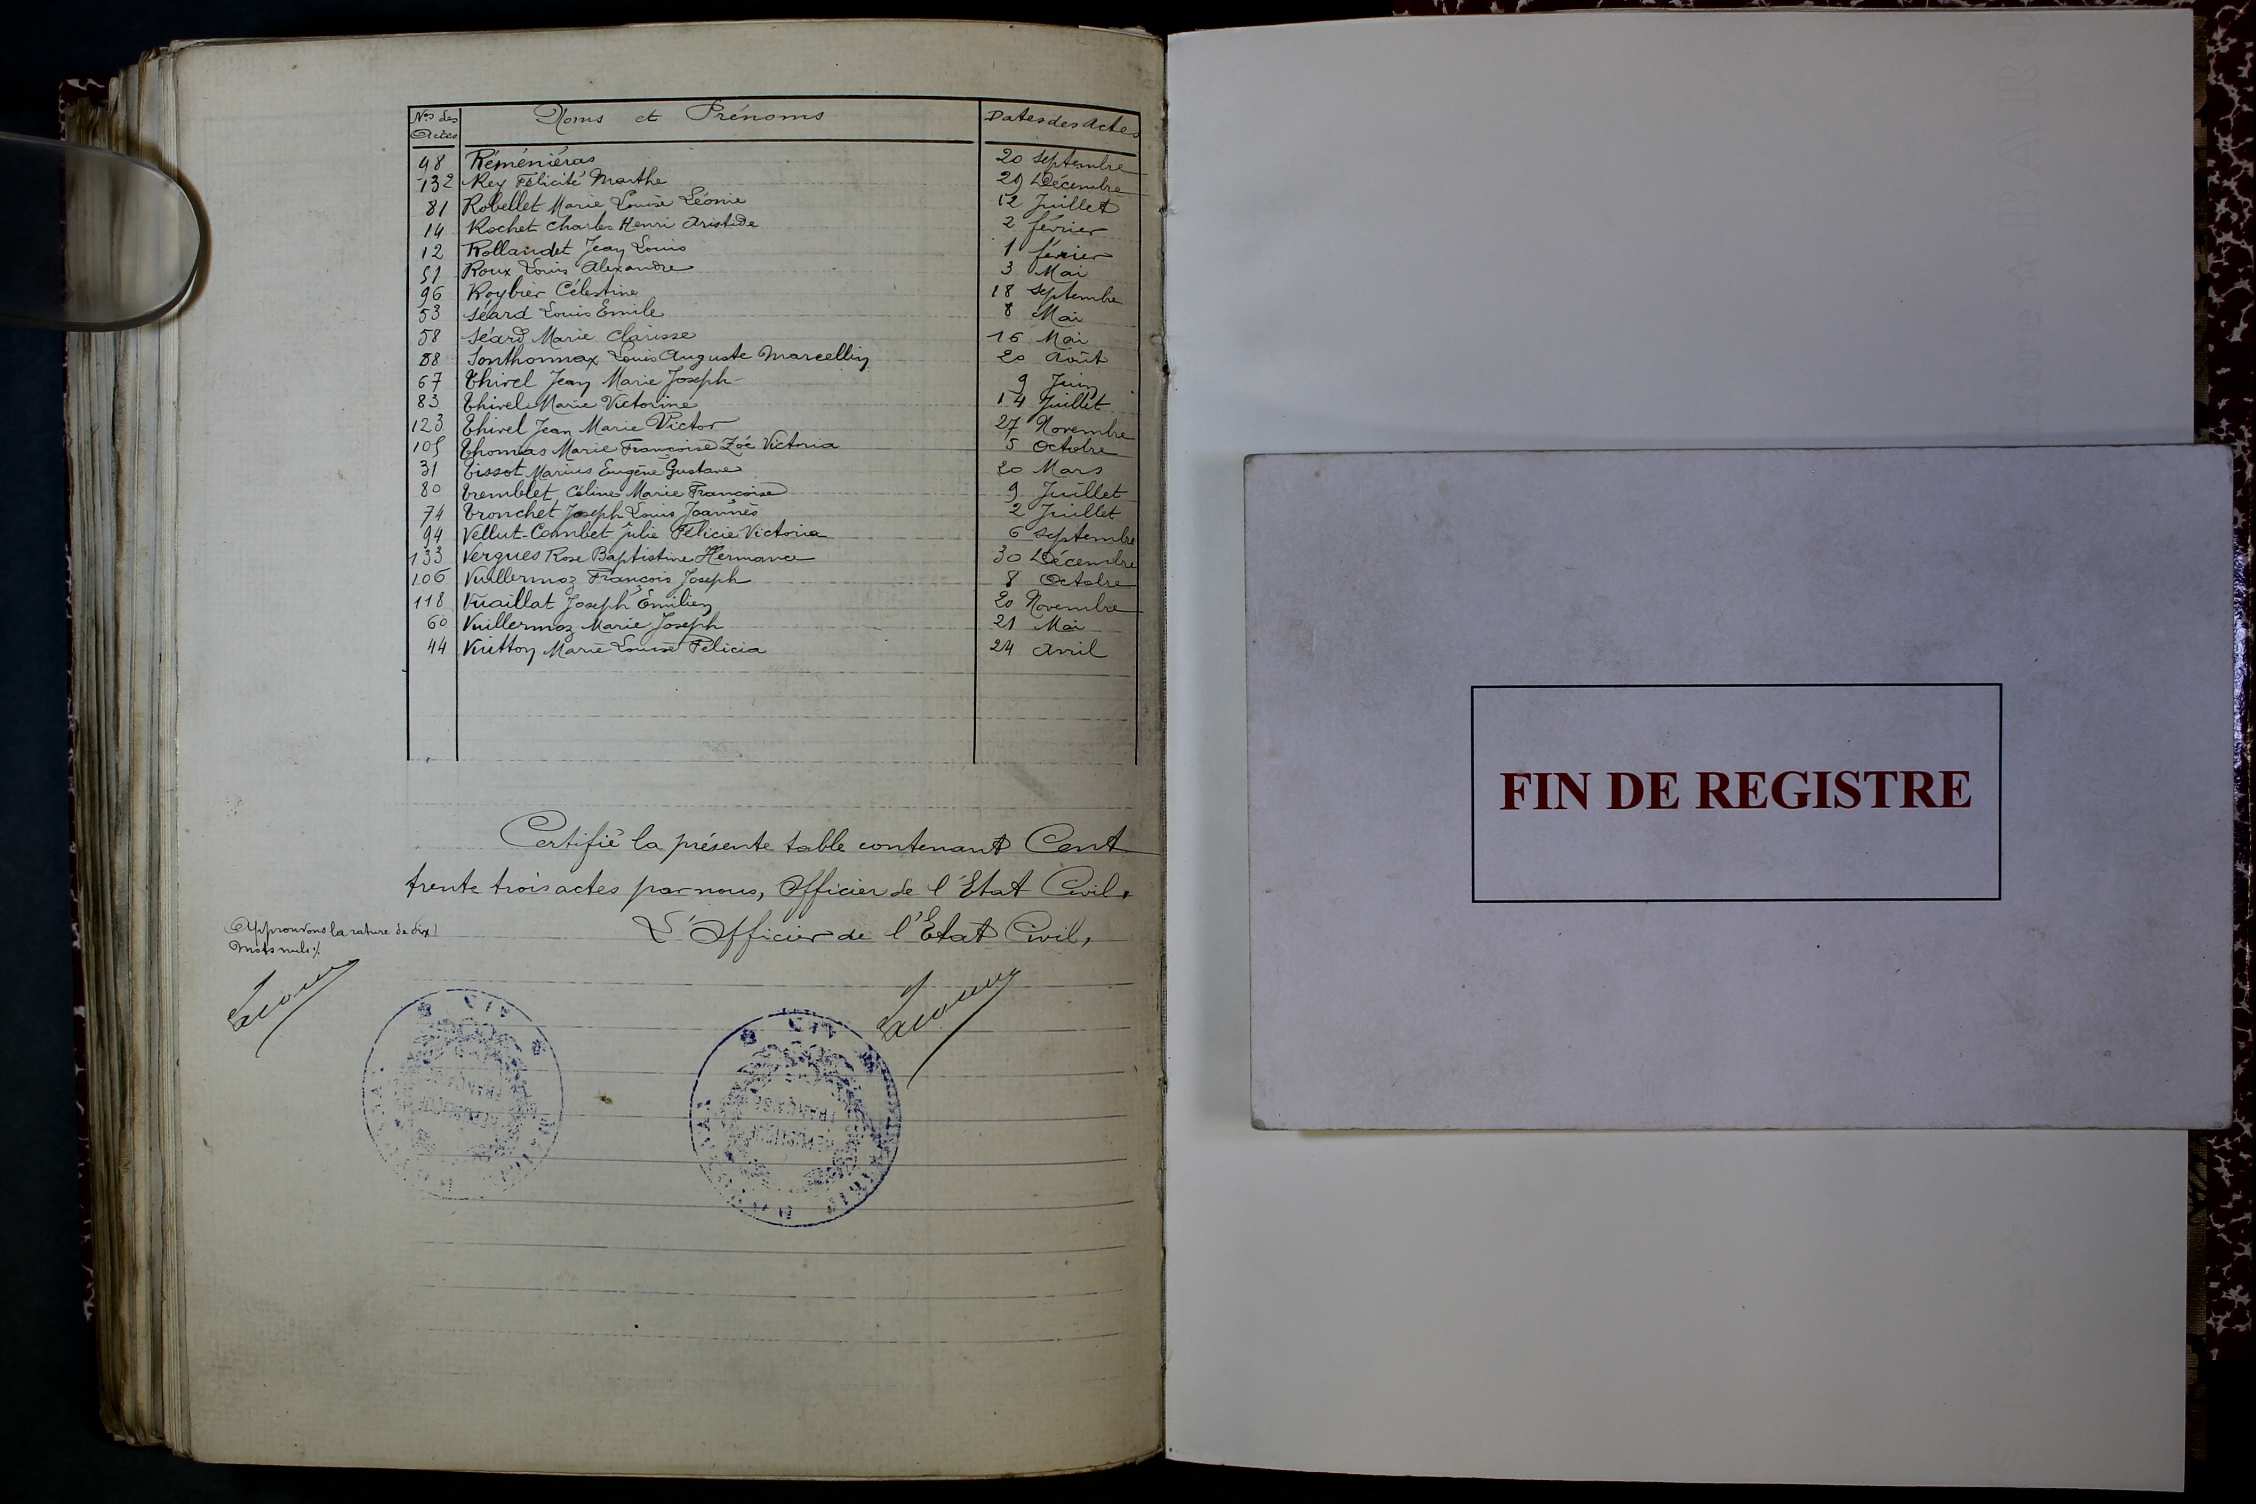 Nos des Actes Noms et Prénoms Dates des Actes
98 Réméniéras 20 Septembre
132 Rey Félicité Marthe 29 Décembre
81 Robellet Marie Louise Léonie 12 Juillet
14 Rochet Charles Henri Aristide 2 février
12 Rollandet Jean Louis 1 février
51 Roux Louis Alexandre 3 Mai
96 Roybier Célestine 18 Septembre
53 Séard Louis Emile 8 Mai
58 Séard Marie Clarisse 16 Mai
88 Sonthonnax Louis Auguste Marcellin 20 Août
67 Thivel Jean Marie Joseph 9 Juin
83 Thivel Marie Victorine 14 Juillet
123 Thivel Jean Marie Victor 27 Novembre
105 Thomas Marie Françoise Zoé Victoria 5 Octobre
31 Tissot Marius Eugène Gustave 20 Mars
80 Tremblet Céline Marie Françoise 9 Juillet
74 Tronchet Joseph Louis Joannès 2 Juillet
94 Vellut-Combet Julie Félicie Victoria 6 Septembre
133 Vergues Rose Baptistine Hermance 30 Décembre
106 Vuillermoz François Joseph 8 Octobre
118 Vuaillat Joseph Emilien 20 Novembre
60 Vuillermoz Marie Joseph 21 Mai
44 Vuitton Marie Louise Félicia 24 Avril
Certifié la présente table contenant Cent
trente trois actes par nous, Officier de l'Etat Civil.
L'Officier de l'Etat Civil,
Approuvons la rature de dix
Mots nuls ./.
FIN DE REGISTRE